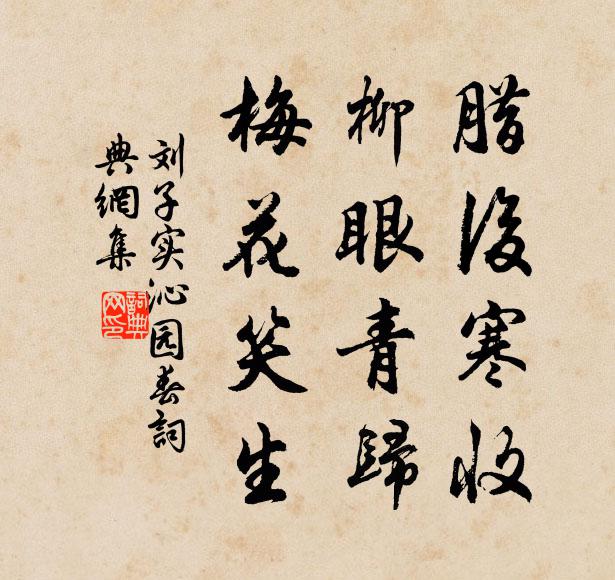 腊後寒收
柳眼青歸
梅花笑生
刘子实沁园春詞
典網集
詞典网印